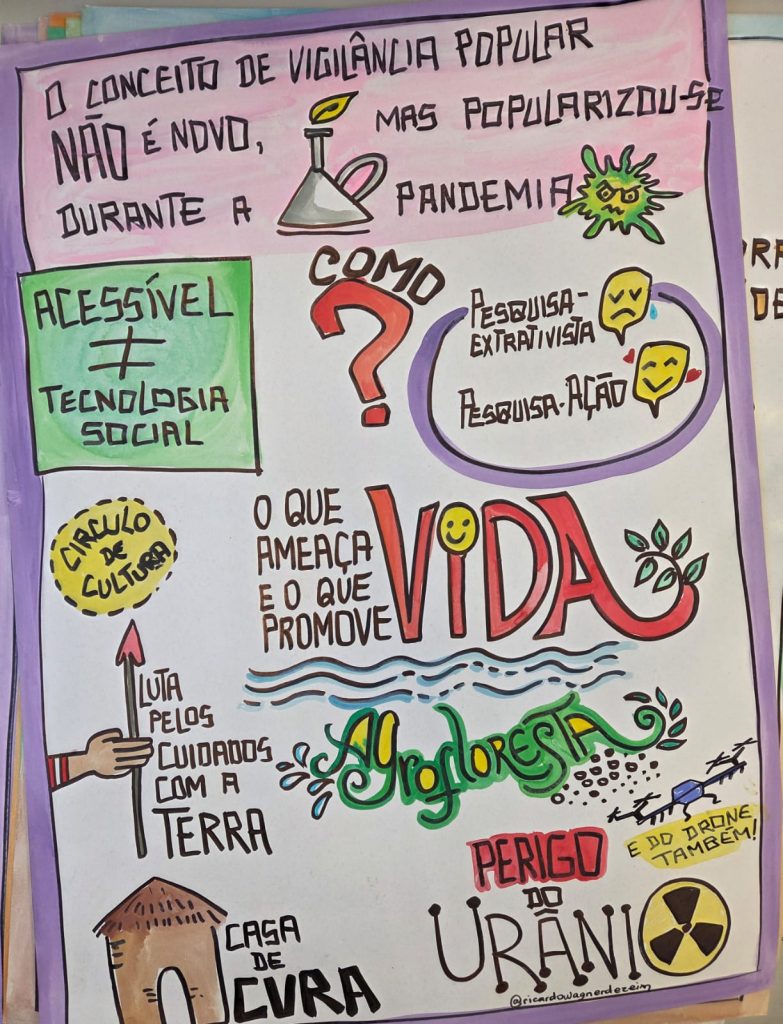 O CONCEITO DE VIGILÂNCIA POPULAR
NÃO É NOVO, MAS POPULARIZOU-SE
DURANTE A PANDEMIA
ACESSÍVEL
≠
TECNOLOGIA
SOCIAL
COMO
?
PESQUISA-
EXTRATIVISTA
PESQUISA-AÇÃO
CIRCULO
DE
CULTURA
O QUE
AMEAÇA
E O QUE
PROMOVE
VIDA
LUTA
PELOS
CUIDADOS
COM A
TERRA
AgrofloRESTA
E DO DRONE
TAMBÉM!
PERIGO
DO
URÂNIO
CASA
DE
CURA
@ricardowagnerdezeim